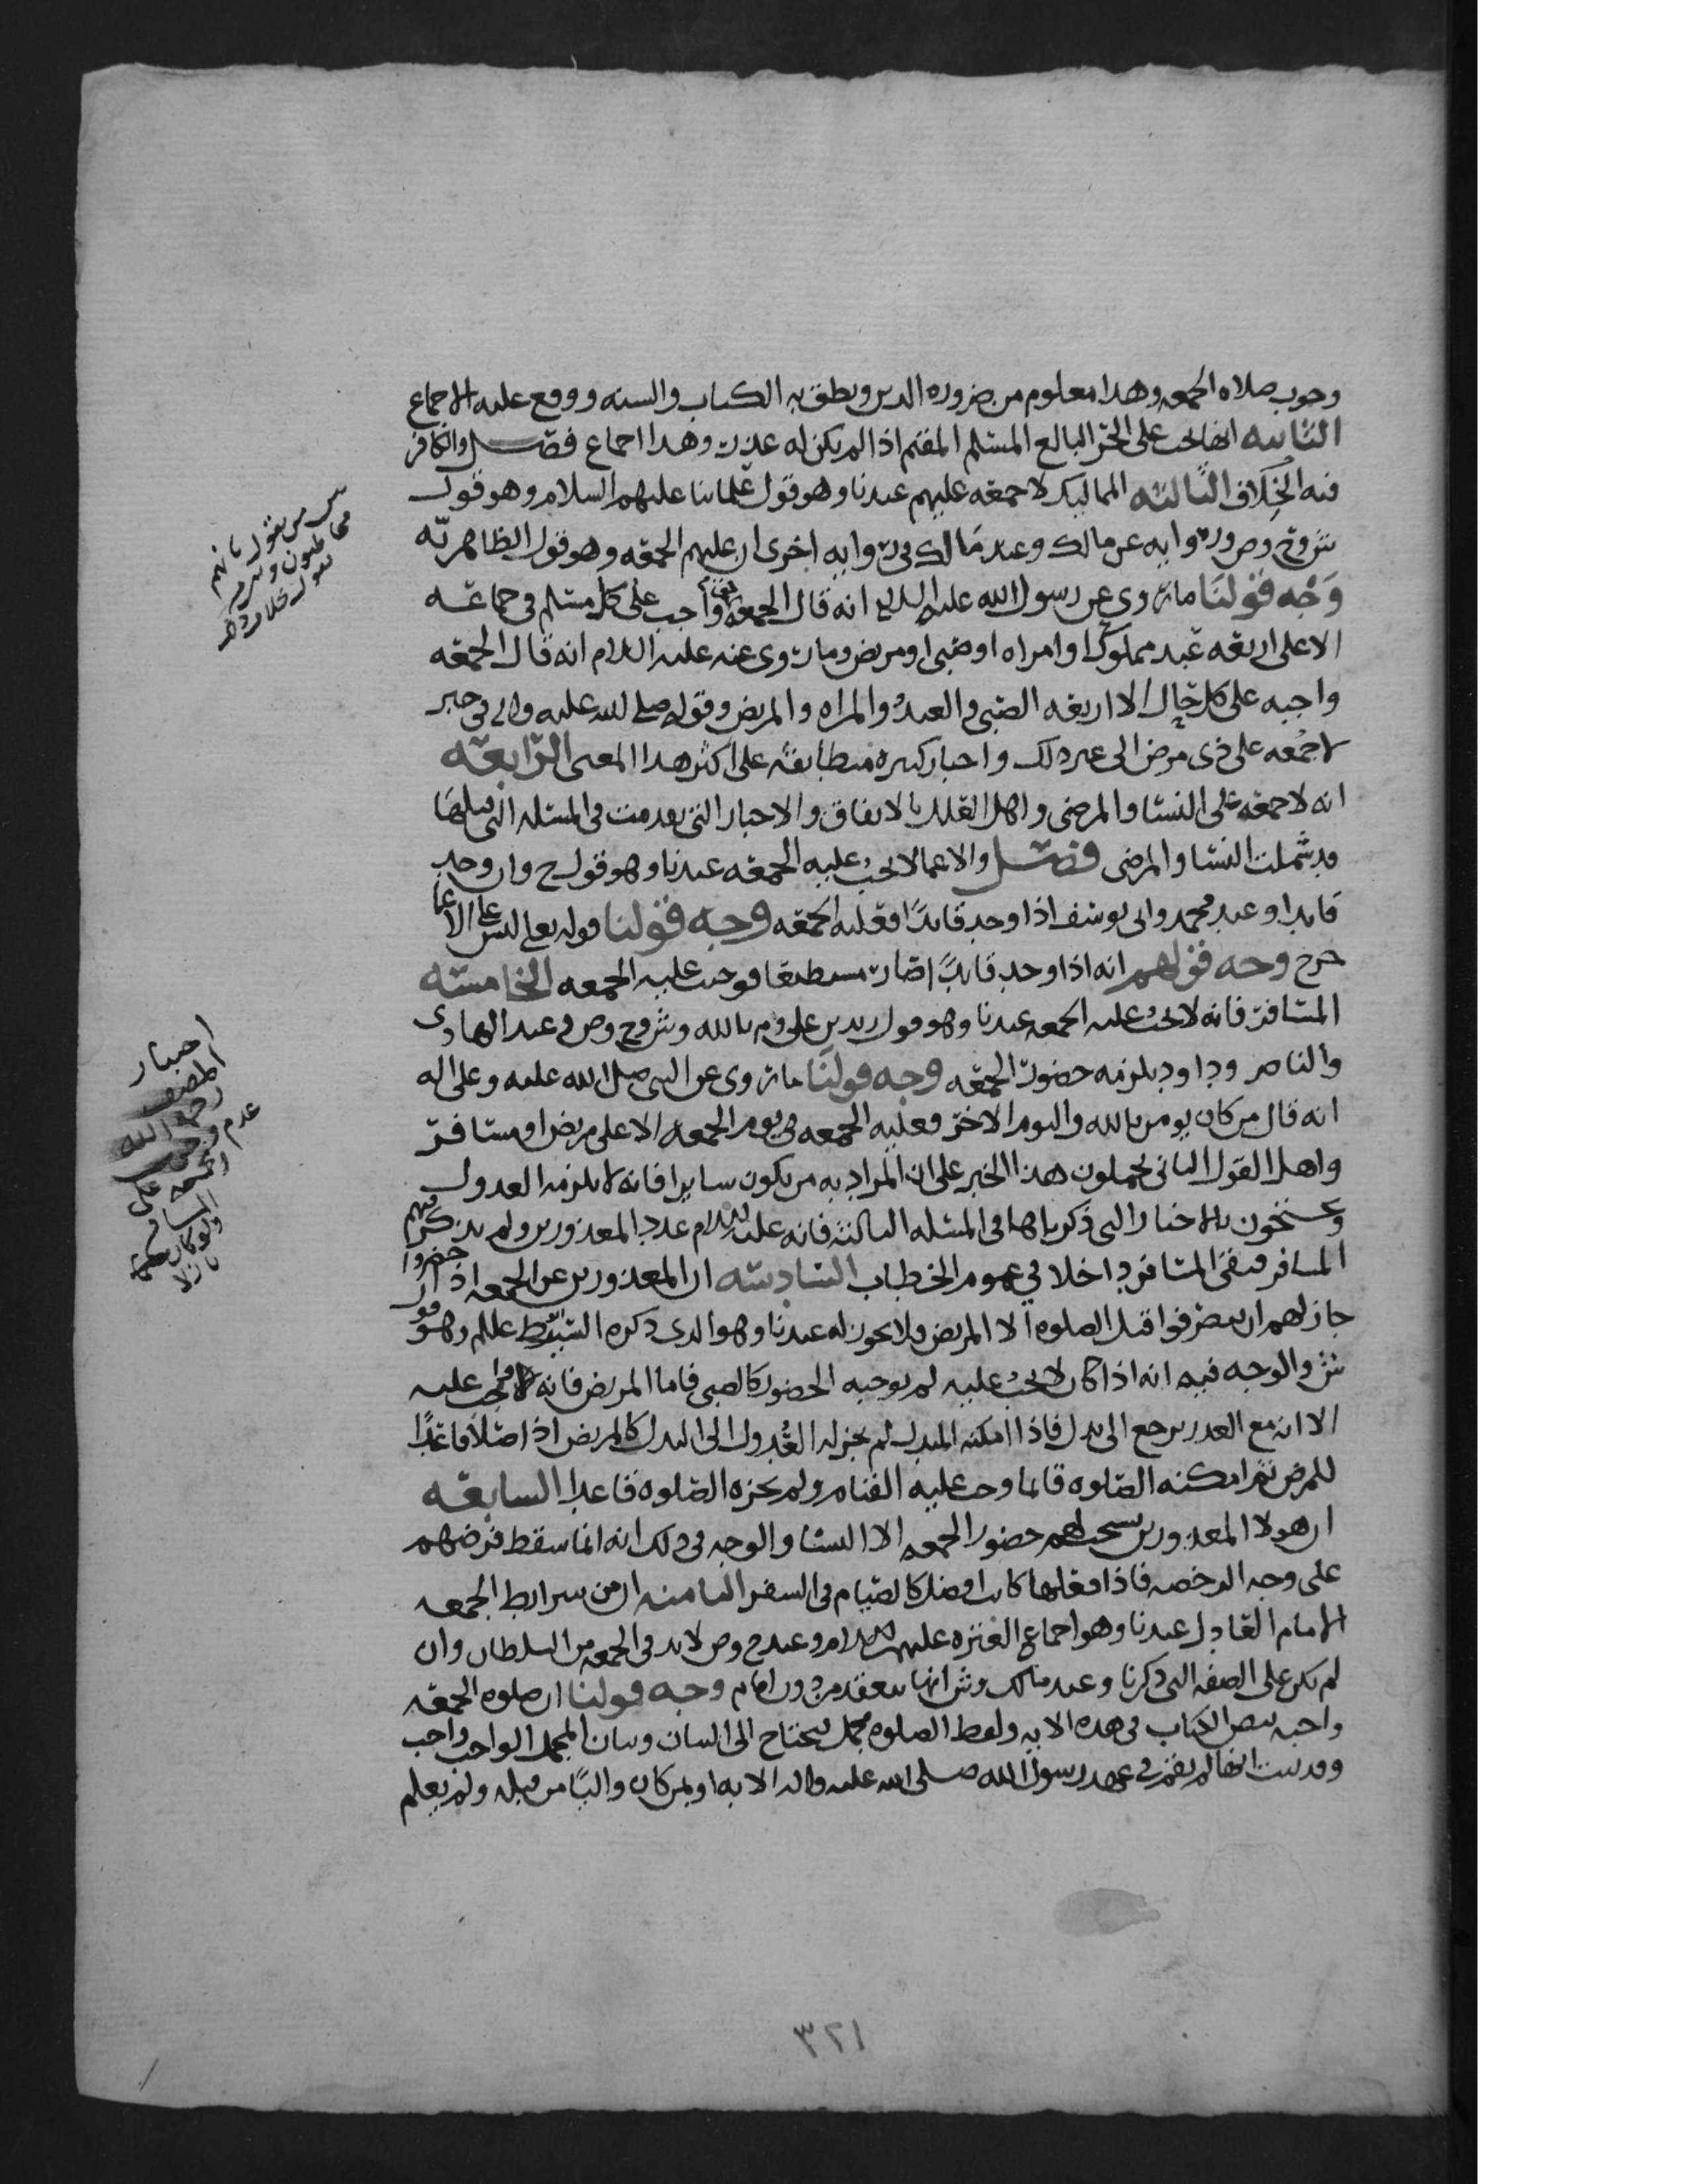 وجوب صلاه الجمعه وهذا معلوم من ضروره الدين ونطق به الكتاب والسنه ووقع عليه الاجماع
الثانيه انها تجب على الحر البالغ المسلم المقيم اذا لم يكن له عذر وهذا اجماع فصل والكافر
فيه الخلاف الثالثه المماليك لا جمعه عليهم عندنا وهو قول علمائنا عليهم السلام وهو قول
ش وح وص وروايه عن مالك وعند مالك في روايه اخرى ان عليهم الجمعه وهو قول الظاهريه
وجه قولنا ما روى عن رسول الله عليه السلام انه قال الجمعه حق واجب على كل مسلم في جماعه
الا على اربعه عبد مملوك او امراه او صبي او مريض وما روى عنه عليه السلام انه قال الجمعه
واجبه على كل حال الا اربعه الصبي والعبد والمراه والمريض وقوله صلى الله عليه واله في خبر
لا جمعه على ذى مرض الى غير ذلك واخبار كثيره متطابقه على اكثر هذا المعنى الرابعه
انه لا جمعه على النسا والمرضى واهل العلل بالاتفاق والاخبار التي تقدمت في المسئله التي قبلها
قد شملت النسا والمرضى فصل والاعما لا تجب عليه الجمعه عندنا وهو قول ح وان وجد
قايدا وعند محمد وابى يوسف اذا وجد قايدًا فعليه الجمعه وجه قولنا قوله تعالى ليس على الاعما
حرج وجه قولهم انه اذا وجد قايدًا صار مستطيعا فوجبت عليه الجمعه الخامسه
المسافر فانه لا تجب عليه الجمعه عندنا وهو قول زيد بن على وم بالله وش وح وص وعند الهادى
والناصر وداود يلزمه حضور الجمعه وجه قولنا ما روى عن النبي صلى الله عليه وعلى اله
انه قال من كان يومن بالله واليوم الاخر فعليه الجمعه في يوم الجمعه الا على مريض او مسافر
واهل القول الثانى يحملون هذا الخبر على ان المراد به من يكون سايرا فانه لا يلزمه العدول
ويحتجون بالاخبار التي ذكرناها في المسئله الثالثه فانه عليه السلام عدد المعذورين ولم يذكر فيهم
المسافر فبقى المسافر داخلا في عموم الخطاب السادسه ان المعذورين عن الجمعه اذا حضروا
جاز لهم ان ينصرفوا قبل الصلوه الا المريض فلا يجوز له عندنا وهو الذى ذكره السيد ط عللم وهو قول
ش والوجه فيه انه اذا كان لا تجب عليه لم يوجبه الحضور كالصبي فاما المريض فانه عليه
الا انه مع العذر يرجع الى بدل فاذا امكنه المبدل لم يجز له العدول الى البدل كالمريض اذا صلا قاعدًا
للمرض ثم امكنه الصلوه قائما وجب عليه القيام ولم تجزه الصلوه قاعدا السابعه
ان هولا المعذورين يستحب لهم حضور الجمعه الا النسا والوجه في ذلك انه انما سقط فرضهم
على وجه الرخصه فاذا فعلوها كانت افضل كالصيام في السفر الثامنه ان من شرايط الجمعه
الامام العادل عندنا وهو اجماع العتره عليهم السلام وعند ح وص لا بد في الجمعه من السلطان وان
لم يكن على الصفه التي ذكرنا وعند مالك وش انها تنعقد من دون امام وجه قولنا ان صلوه الجمعه
واجبه بنص الكتاب في هذه الايه ولفظ الصلوه مجمل يحتاج الى البيان وبيان المجمل الواجب واجب
وقد ثبت انها لم تقم في عهد رسول الله صلى الله عليه واله الا به او بمن كان واليًا من قبله ولم يعلم
من يقول بانهم
مخاطبون ومن
يقول خلاف ذلك
اختيار
المصنف
رحمه الله
عدم وجوب
الجمعه على
المسافر
ولو كان
نازلا
٣٢١